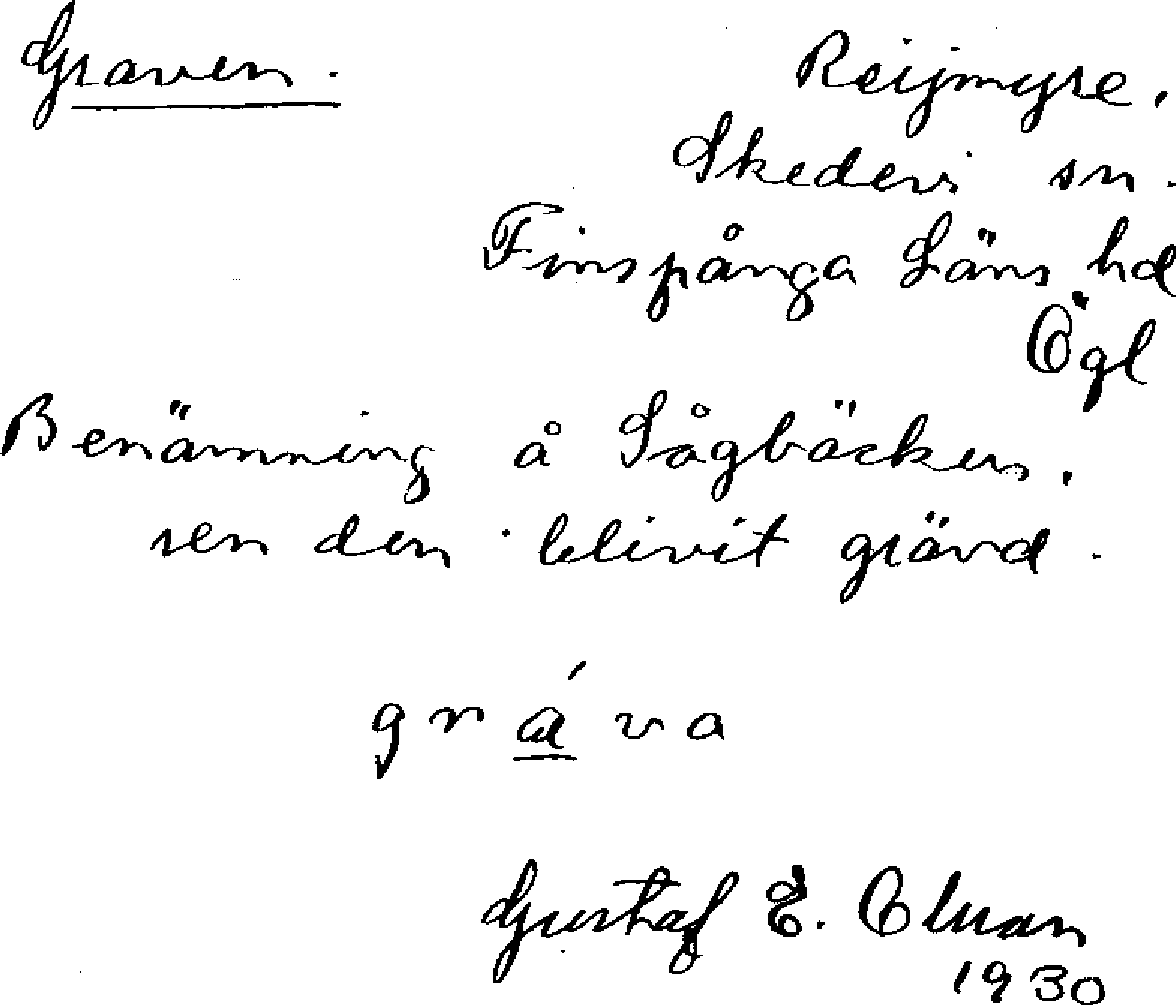 Graven.
Reijmyre.
Skedevi sn.
Finspånga Läns hd
Ögl
Benämning å Sågbäcken.
sen den blivit grävd.
gráva
Gustaf E.
1930